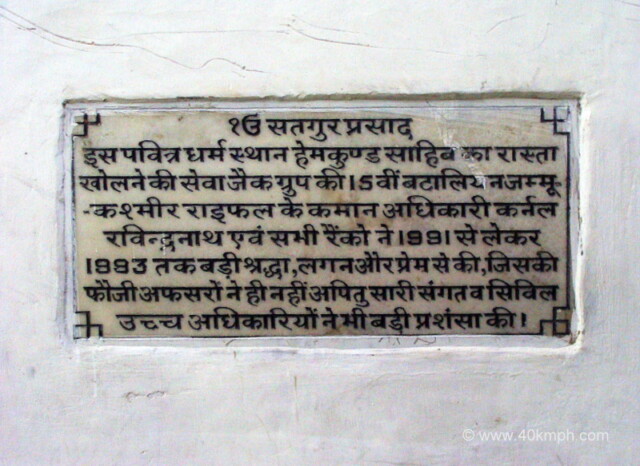 ੧ੳ सतगुर प्रसाद
इस पवित्र धर्म स्थान हेमकुण्ड साहिब का रास्ता
खोलने की सेवा जैक ग्रुप की 15वीं बटालियन जम्मू-
-कश्मीर राइफल के कमान अधिकारी कर्नल
रविन्द्रनाथ एवं सभी रैंको ने 1991 से लेकर
1993 तक बड़ी श्रद्धा, लगन और प्रेम से की, जिसकी
फौजी अफसरों ने ही नहीं अपितु सारी संगत व सिविल
उच्च अधिकारियों ने भी बड़ी प्रशंसा की।
© www.40kmph.com